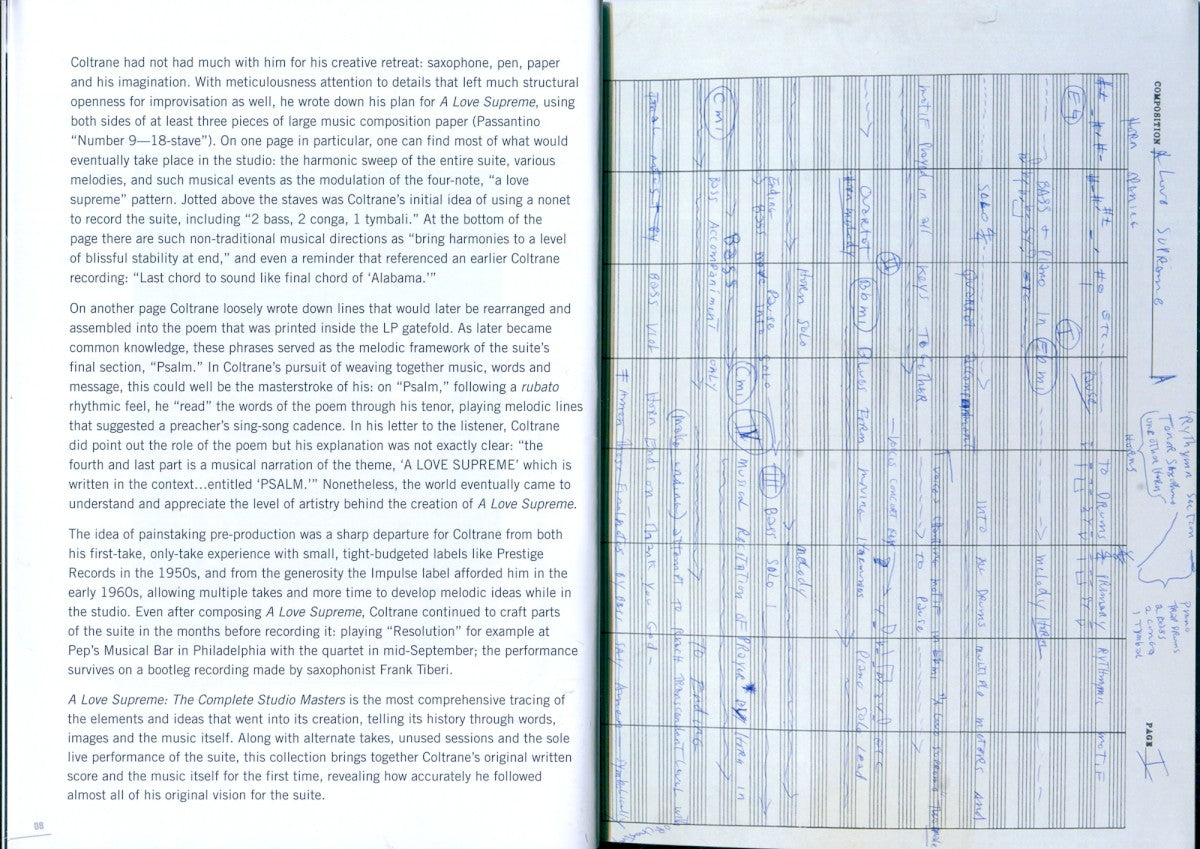 Coltrane had not had much with him for his creative retreat: saxophone, pen, paper
and his imagination. With meticulousness attention to details that left much structural
openness for improvisation as well, he wrote down his plan for A Love Supreme, using
both sides of at least three pieces of large music composition paper (Passantino
“Number 9—18-stave”). On one page in particular, one can find most of what would
eventually take place in the studio: the harmonic sweep of the entire suite, various
melodies, and such musical events as the modulation of the four-note, “a love
supreme” pattern. Jotted above the staves was Coltrane’s initial idea of using a nonet
to record the suite, including “2 bass, 2 conga, 1 tymbali.” At the bottom of the
page there are such non-traditional musical directions as “bring harmonies to a level
of blissful stability at end,” and even a reminder that referenced an earlier Coltrane
recording: “Last chord to sound like final chord of ‘Alabama.’”
On another page Coltrane loosely wrote down lines that would later be rearranged and
assembled into the poem that was printed inside the LP gatefold. As later became
common knowledge, these phrases served as the melodic framework of the suite’s
final section, “Psalm.” In Coltrane’s pursuit of weaving together music, words and
message, this could well be the masterstroke of his: on “Psalm,” following a rubato
rhythmic feel, he “read” the words of the poem through his tenor, playing melodic lines
that suggested a preacher’s sing-song cadence. In his letter to the listener, Coltrane
did point out the role of the poem but his explanation was not exactly clear: “the
fourth and last part is a musical narration of the theme, ‘A LOVE SUPREME’ which is
written in the context...entitled ‘PSALM.’” Nonetheless, the world eventually came to
understand and appreciate the level of artistry behind the creation of A Love Supreme.
The idea of painstaking pre-production was a sharp departure for Coltrane from both
his first-take, only-take experience with small, tight-budgeted labels like Prestige
Records in the 1950s, and from the generosity the Impulse label afforded him in the
early 1960s, allowing multiple takes and more time to develop melodic ideas while in
the studio. Even after composing A Love Supreme, Coltrane continued to craft parts
of the suite in the months before recording it: playing “Resolution” for example at
Pep’s Musical Bar in Philadelphia with the quartet in mid-September; the performance
survives on a bootleg recording made by saxophonist Frank Tiberi.
A Love Supreme: The Complete Studio Masters is the most comprehensive tracing of
the elements and ideas that went into its creation, telling its history through words,
images and the music itself. Along with alternate takes, unused sessions and the sole
live performance of the suite, this collection brings together Coltrane’s original written
score and the music itself for the first time, revealing how accurately he followed
almost all of his original vision for the suite.
COMPOSITION A Love Supreme PAGE I
Rythymn section
Piano
Tenor Saxophone
2 Bass
2 conga
Horns
I Pause TO DRUMS PRIMARY RYTHMIC MOTIF
BASS + PIANO IN Ebmi melody Horn
SOLO Quartet accompaniment INTO ALL DRUMS multiple meters and
motif Played in all Keys Together TO Pause
II
Quartet Bbmi Blues Form Piano Solo Lead
Horn Solo melody
Ending Bass Pause into Solo III Bass Solo
Bass Cmi IV MUSICAL RECITATION OF PRAYER BY HORN in
Cmi BASS ACCOMPANIMENT ONLY TO Ending
(make ending attempt TO Reach transcendent Level with
Horn Ends on — Thank You God —